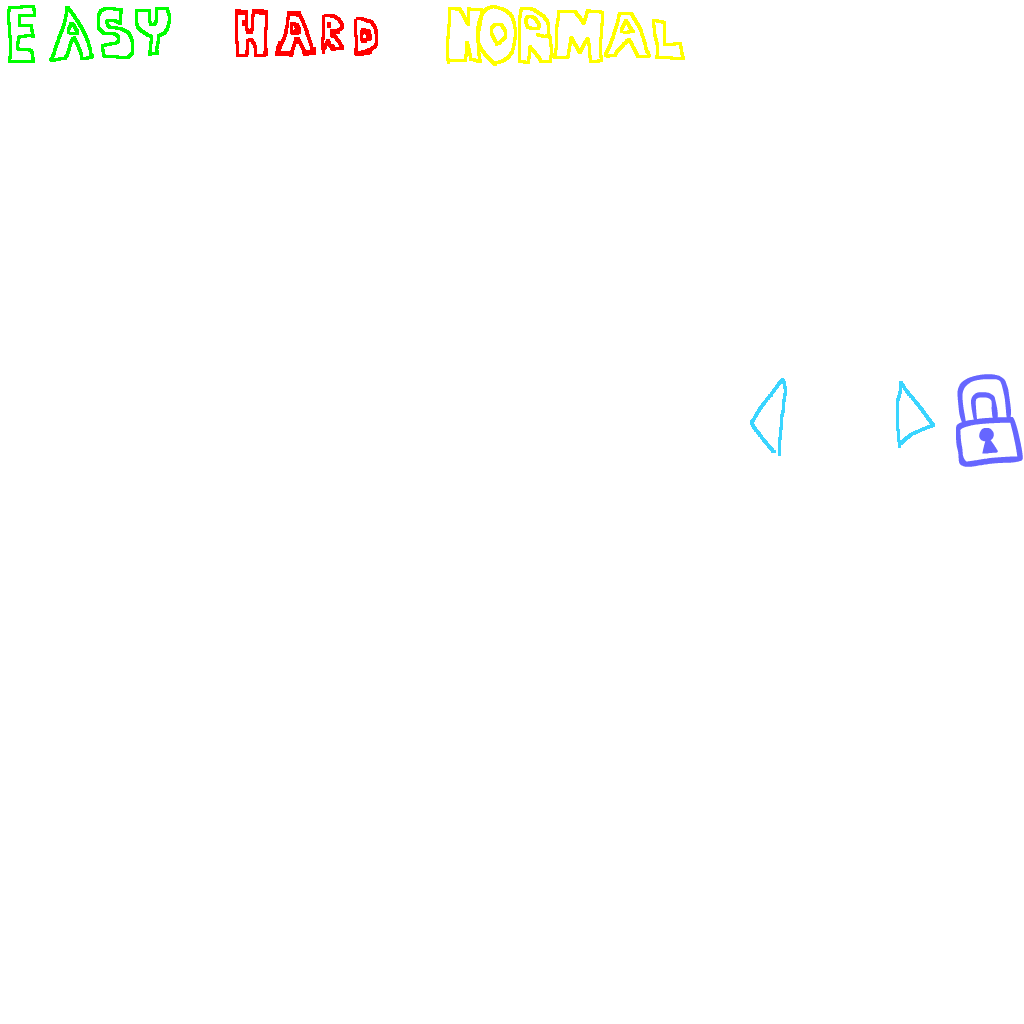 EASY HARD NORMAL